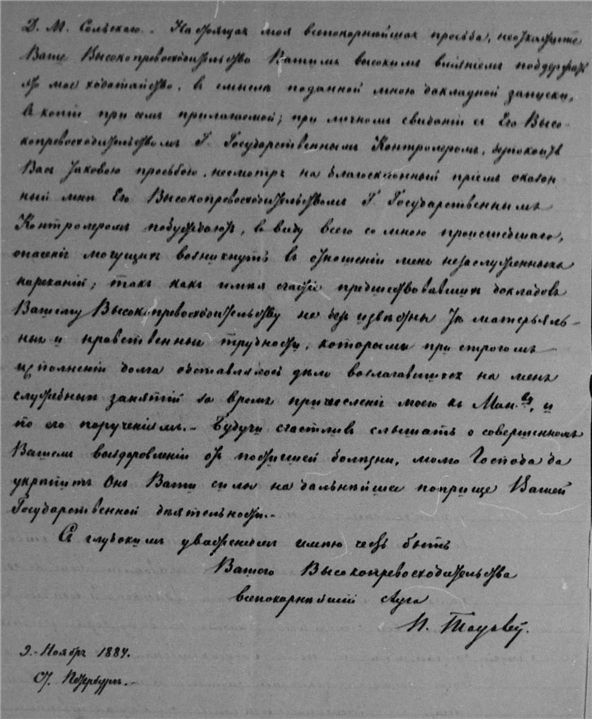 Д. М. Сольскаго. Настоящая моя всепокорнѣйшая просьба, не откажите
Ваше Высокопревосходительство Вашимъ высокимъ вліяніемъ поддержать
это мое ходатайство, въ смыслѣ поданной мною докладной запуски,
въ копіи при семъ прилагаемой; при личномъ свиданіи съ Его Высо-
копревосходительствомъ Г. Государственнымъ Контролеромъ, безпокоить
Васъ таковою просьбою, несмотря на благосклонный пріемъ оказан-
ный мнѣ Его Высокопревосходительствомъ Г. Государственнымъ
Контролеромъ побуждаютъ, въ виду всего со мною происшедшаго,
опасенія могущихъ возникнуть въ отношеніи меня незаслуженныхъ
нареканій; такъ какъ имѣя счастіе предшествовавшихъ докладовъ
Вашему Высокопревосходительству не безъизвѣстны тѣ матерьяль-
ныя и нравственныя трудности, которыми при строгомъ
исполненіи долга обставлялось дѣло возлагавшихся на меня
служебныхъ занятій во время причисленія моего къ Мин.ву, и
по его порученіямъ. - Будучи счастливъ слышать о совершенномъ
Вашемъ выздоровленіи отъ постигшей болѣзни, молю Господа да
укрѣпитъ Онъ Ваши силы на дальнѣйшее поприще Вашей
Государственной дѣятельности. -
Съ глубокимъ уваженіемъ имѣю честь быть
Вашего Высокопревосходительства
всепокорнѣйшій слуга
9 - Ноября 1884.
Ст. Петербургъ. -